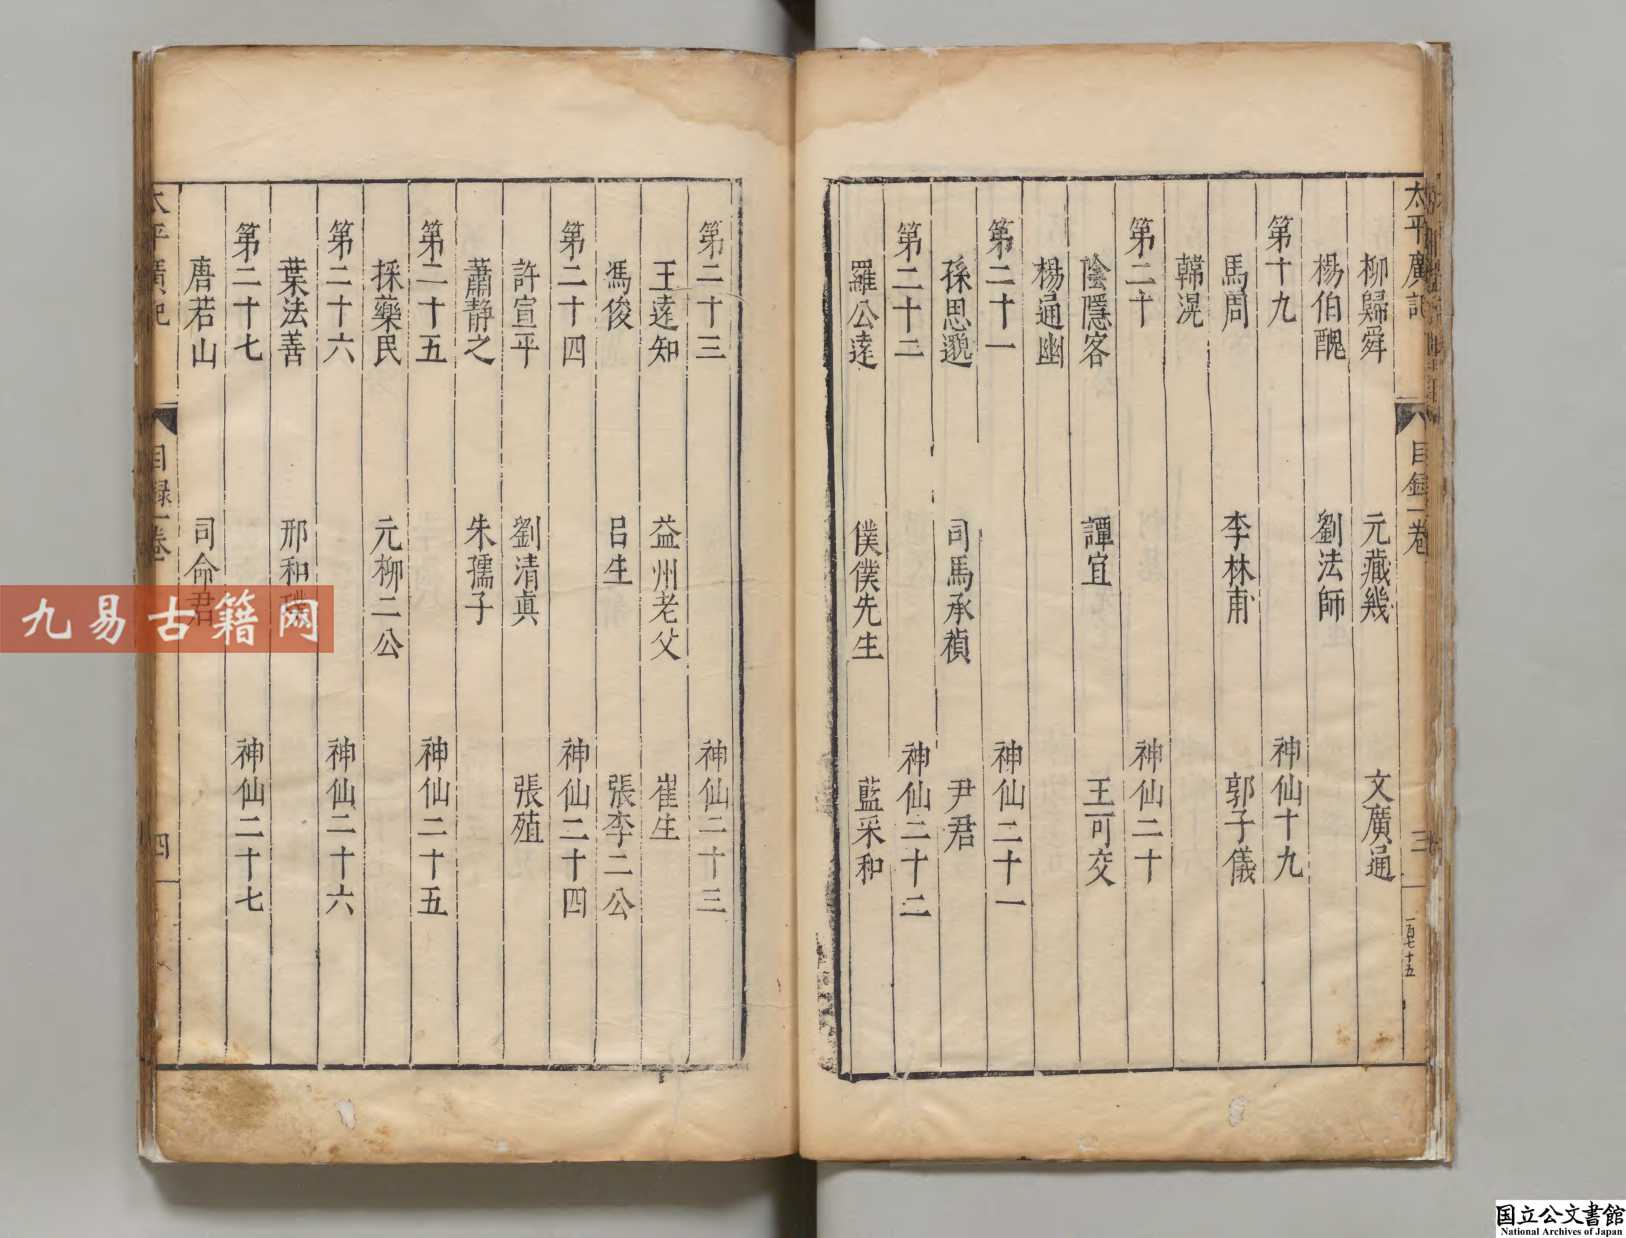 太平廣記 目錄一卷 三 一百七十五
柳歸舜 元藏幾 文廣通
楊伯醜 劉法師
第十九 神仙十九
馬周 李林甫 郭子儀
韓滉
第二十 神仙二十
陰隱客 譚宜 王可交
楊通幽
第二十一 神仙二十一
孫思邈 司馬承禎 尹君
第二十二 神仙二十二
羅公遠 僕僕先生 藍采和
第二十三 神仙二十三
王遠知 益州老父 崔生
馮俊 吕生 張李二公
第二十四 神仙二十四
許宣平 劉清眞 張殖
蕭靜之 朱孺子
第二十五 神仙二十五
採藥民 元柳二公
第二十六 神仙二十六
葉法善 邢和璞
第二十七 神仙二十七
唐若山 司命君
太平廣記 目錄一卷 四
九易古籍网
国立公文書館
National Archives of Japan